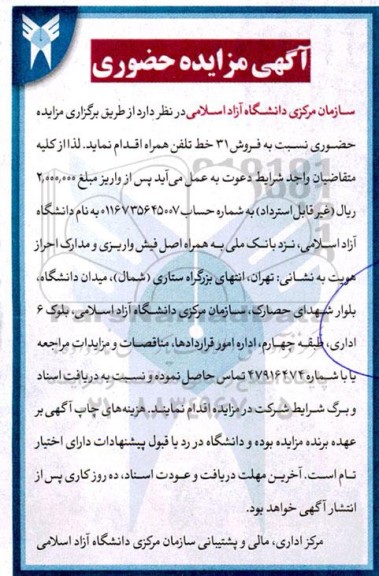 آگهی مزایده حضوری
سازمان مرکزی دانشگاه آزاد اسلامی در نظر دارد از طریق برگزاری مزایده
حضوری نسبت به فروش ۳۱ خط تلفن همراه اقدام نماید. لذا از کلیه
متقاضیان واجد شرایط دعوت به عمل می‌آید پس از واریز مبلغ ۲,۰۰۰,۰۰۰
ریال (غیر قابل استرداد) به شماره حساب ۰۱۱۶۷۳۵۶۴۵۰۰۷ به نام دانشگاه
آزاد اسلامی، نزد بانک ملی به همراه اصل فیش واریزی و مدارک احراز
هویت به نشانی: تهران، انتهای بزرگراه ستاری (شمال)، میدان دانشگاه،
بلوار شهدای حصارک، سازمان مرکزی دانشگاه آزاد اسلامی، بلوک ۶
اداری، طبقه چهارم، اداره امور قراردادها، مناقصات و مزایدات مراجعه
یا با شماره ۴۷۹۱۶۴۷۴ تماس حاصل نموده و نسبت به دریافت اسناد
و برگ شرایط شرکت در مزایده اقدام نمایند. هزینه‌های چاپ آگهی بر
عهده برنده مزایده بوده و دانشگاه در رد یا قبول پیشنهادات دارای اختیار
تام است. آخرین مهلت دریافت و عودت اسناد، ده روز کاری پس از
انتشار آگهی خواهد بود.
مرکز اداری، مالی و پشتیبانی سازمان مرکزی دانشگاه آزاد اسلامی